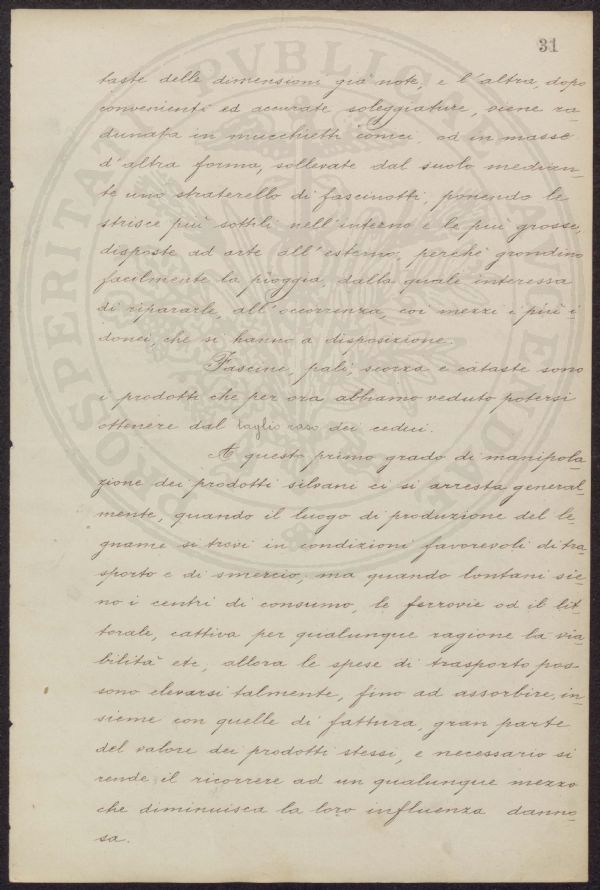 31
taste delle dimensioni già note, e l'altra, dopo
convenienti ed accurate soleggiature, viene ra-
dunata in mucchietti conici, od in masse
d'altra forma, sollevate dal suolo median-
te uno straterello di fascinotti, ponendo le
strisce più sottili nell'interno e le più grosse,
disposte ad arte all'esterno, perchè grondino
facilmente la pioggia, dalla quale interessa
di ripararle, all'occorrenza, coi mezzi i più i-
donei, che si hanno a disposizione.
Fascine, pali, scorza e cataste sono
i prodotti che per ora abbiamo veduto potersi
ottenere dal taglio raso dei cedui.
A questo primo grado di manipola-
zione dei prodotti silvani ci si arresta general-
mente, quando il luogo di produzione del le-
gname si trovi in condizioni favorevoli di tra-
sporto e di smercio; ma quando lontani sie-
no i centri di consumo, le ferrovie od il lit-
torale, cattiva per qualunque ragione la via-
bilità etc, allora le spese di trasporto pos-
sono elevarsi talmente, fino ad assorbire, in-
sieme con quelle di fattura, gran parte
del valore dei prodotti stessi, e necessario si
rende il ricorrere ad un qualunque mezzo
che diminuisca la loro influenza danno-
sa.
PROSPERITATI PVBLICAE AVGENDAE